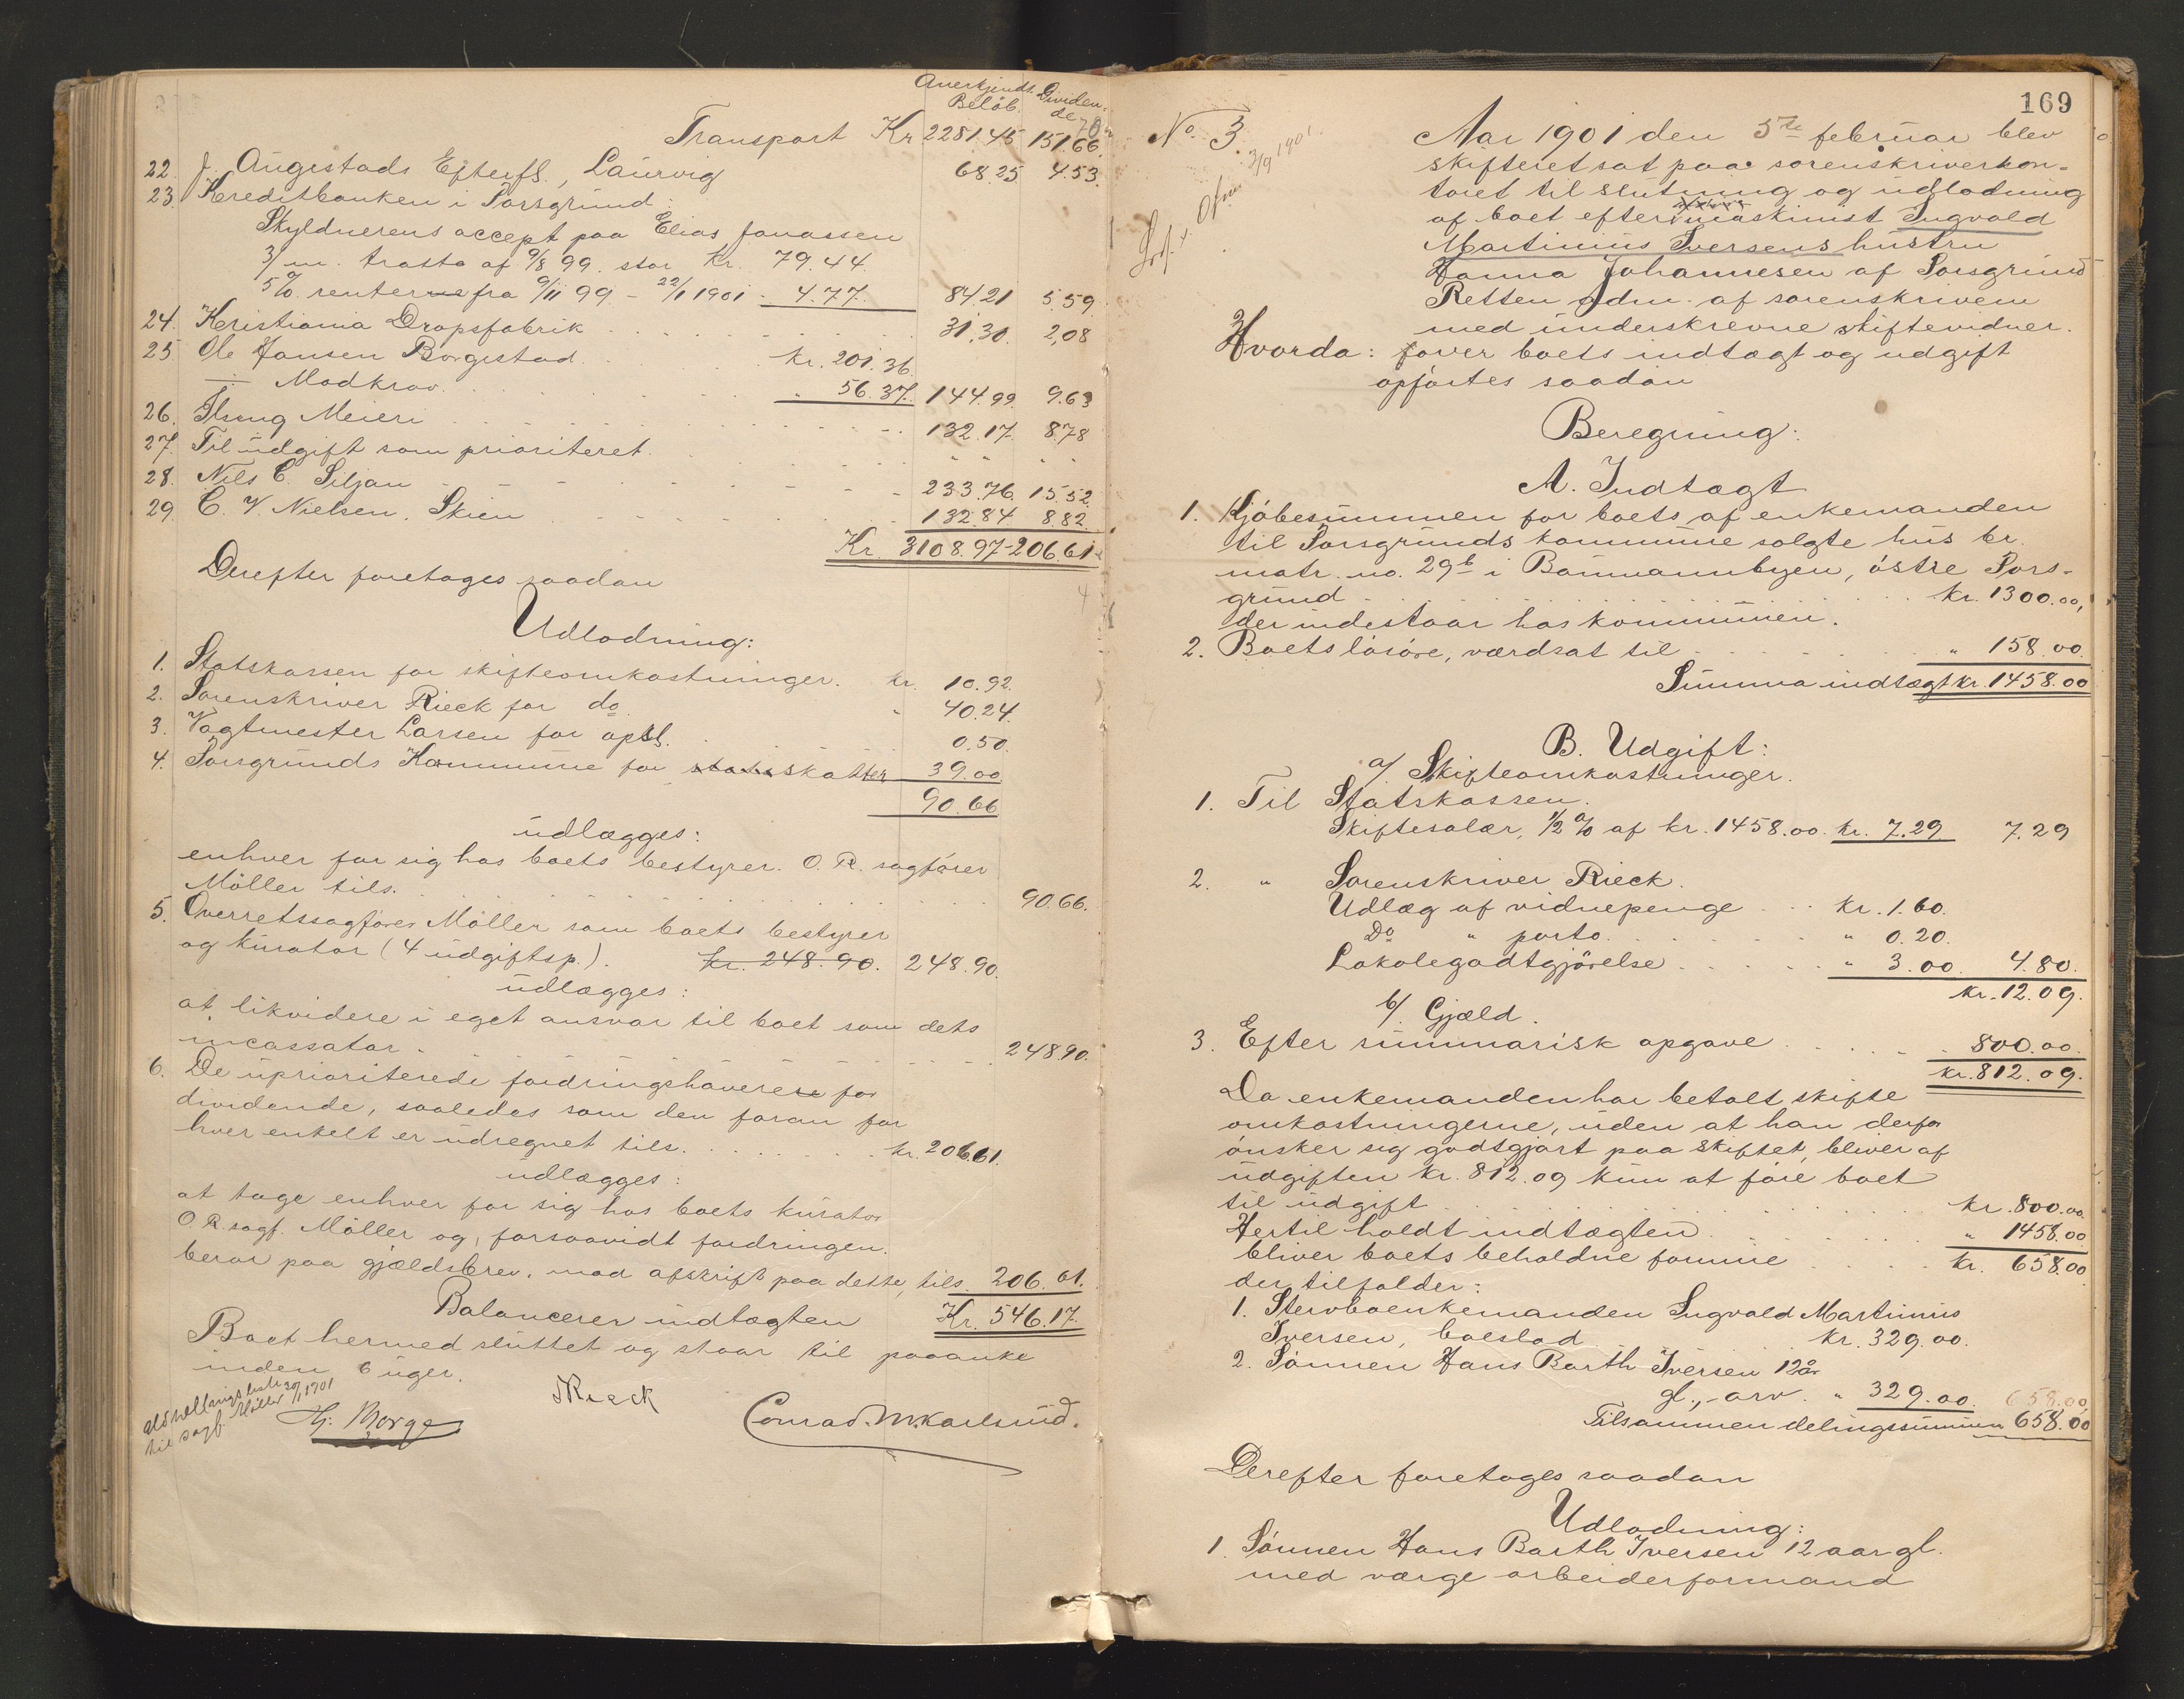 Anerkjendt Beløb. Dividende
Transport Kr 2281.45 151.66
22. J. Augestads Efterfl., Laurvig 68.25 4.53.
23. Kreditbanken i Porsgrund:
Skyldnerens accept paa Elias Jonassen
3/m. tratta af 9/8 99. stor kr. 79.44.
5% renter fra 9/11 99 – 22/1 1901 - 4.77. 84.21 5.59
24. Kristiania Dropsfabrik 31.30. 2,08
25. Ole Hansen Borgestad. kr. 201.36.
Modkrav. " 56.37. 144.99. 9.63
26. Thung Meieri 132.17. 8.78
27. Til udgift som prioriteret. " " " "
28. Nils C. Siljan 233.76. 15.52.
29. C. V. Nielsen. Skien 132.84 8.82.
Kr. 3108.97-206.61
Derefter foretoges saadan
Udlodning:
1. Statskassen for skifteomkostninger. kr. 10.92.
2. Sorenskriver Rieck for do. " 40.24.
3. Vagtmester Larsen for opsl. 0.50.
4. Porsgrunds Kommune for stats skatter 39.00
90.66
udlægges:
enhver for sig hos boets bestyrer. O. R. sagfører
Møller tils. 90.66.
5. Overretssagfører Møller som boets bestyrer
og kurator (4 udgiftsp.). kr. 248.90. 248.90.
udlægges:
at likvidere i eget ansvar til boet som dets
incassator. 248.90.
6. De uprioriterede fordringshavere for
dividende, saaledes som den foran for
hver enkelt er udregnet tils. kr. 206.61.
udlægges:
at tage enhver for sig hos boets kurator
O. R. sagf. Møller og, forsaavidt fordringen
beror paa gjældsbrev, mod afskrift paa dette, tils. 206.61.
Balancerer indtægten Kr. 546.17.
Boet hermed sluttet og staar til paaanke
inden 6 uger.
til sagf. Møller 1901
H. Borge Rieck Conrad. M. Karlsrud.
169
No. 3.
Aar 1901 den 5te februar blev
skifteret sat paa sorenskriverkon-
toret til slutning og udlodning
af boet efter maskinist Ingvald
Martinius Iversens hustru
Hanna Johannesen af Porsgrund
Retten adm. af sorenskriveren
med underskrevne skiftevidner.
Hvorda: over boets indtægt og udgift
opførtes saadan
Beregning:
A. Indtægt
1. Kjøbesummen for boets af enkemanden
til Porsgrunds kommune solgte hus br.
matr. no. 29b i Baumannbyen, østre Pors-
grund kr. 1300.00,
der indestaar hos kommunen.
2. Boets løsøre, værdsat til " 158.00.
Summa indtægt kr. 1458.00
B. Udgift:
a/ Skifteomkostninger.
1. Til Statskassen.
Skiftesalær, 1/2 % af kr. 1458.00. kr. 7.29 7.29
2. " Sorenskriver Rieck.
Udlæg af vidnepenge kr. 1.60.
Do " porto. " 0.20.
Lokalegodtgjørelse " 3.00. 4.80.
kr. 12.09.
b/ Gjæld.
3. Efter summarisk opgave 800.00.
kr. 812.09.
Da enkemanden har betalt skifte
omkostningerne, uden at han derfor
ønsker sig godtgjort paa skiftet, bliver af
udgiften kr. 812.09 kun at føie boet
til udgift kr. 800.00
Hertil holdt indtægten " 1458.00
bliver boets beholdne formue kr. 658.00
der tilfalder:
1. Stervboenkemanden Ingvald Martinius
Iversen, boeslod kr. 329.00.
2. Sønnen Hans Barth Iversen 12 år
gl., arv. " 329.00. 658.00,
Tilsammen delingssummen 658.00
Derefter foretoges saadan
Udlodning:
1. Sønnen Hans Barth Iversen 12 aar gl.
med værge arbeiderformand